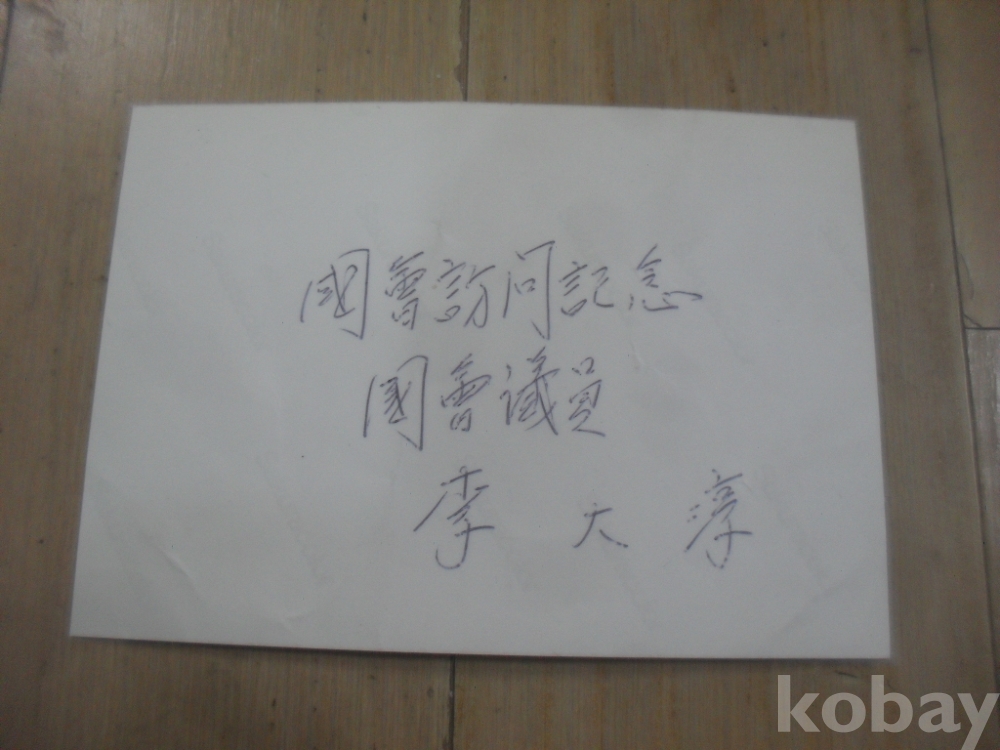 國會訪問記念
國會議員
李 大 淳
kobay